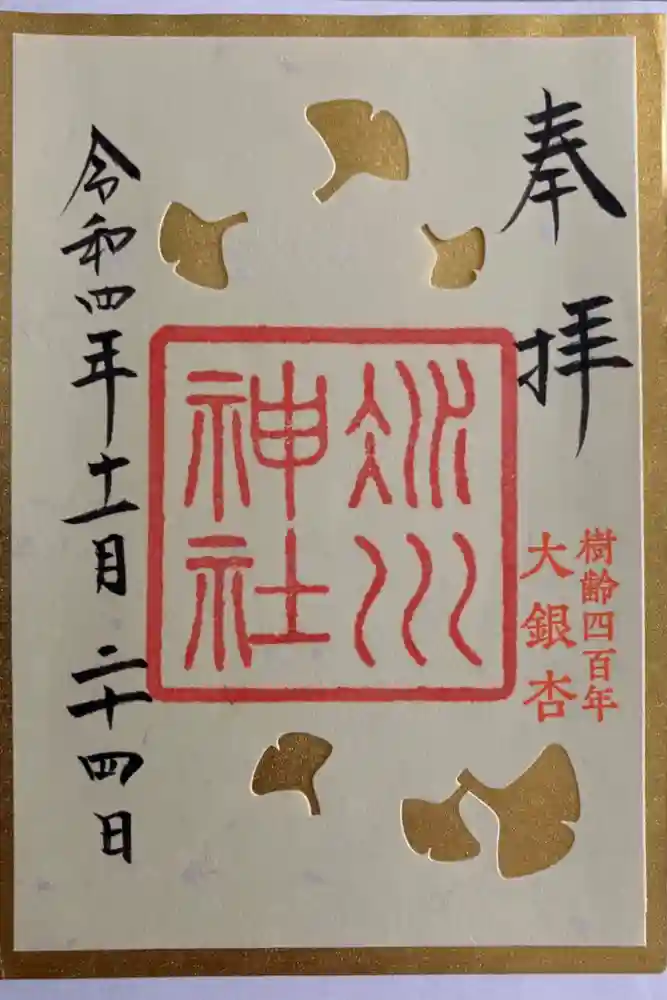 奉拝
樹齢四百年
大銀杏
冰川
神社
令和四年十一月二十四日